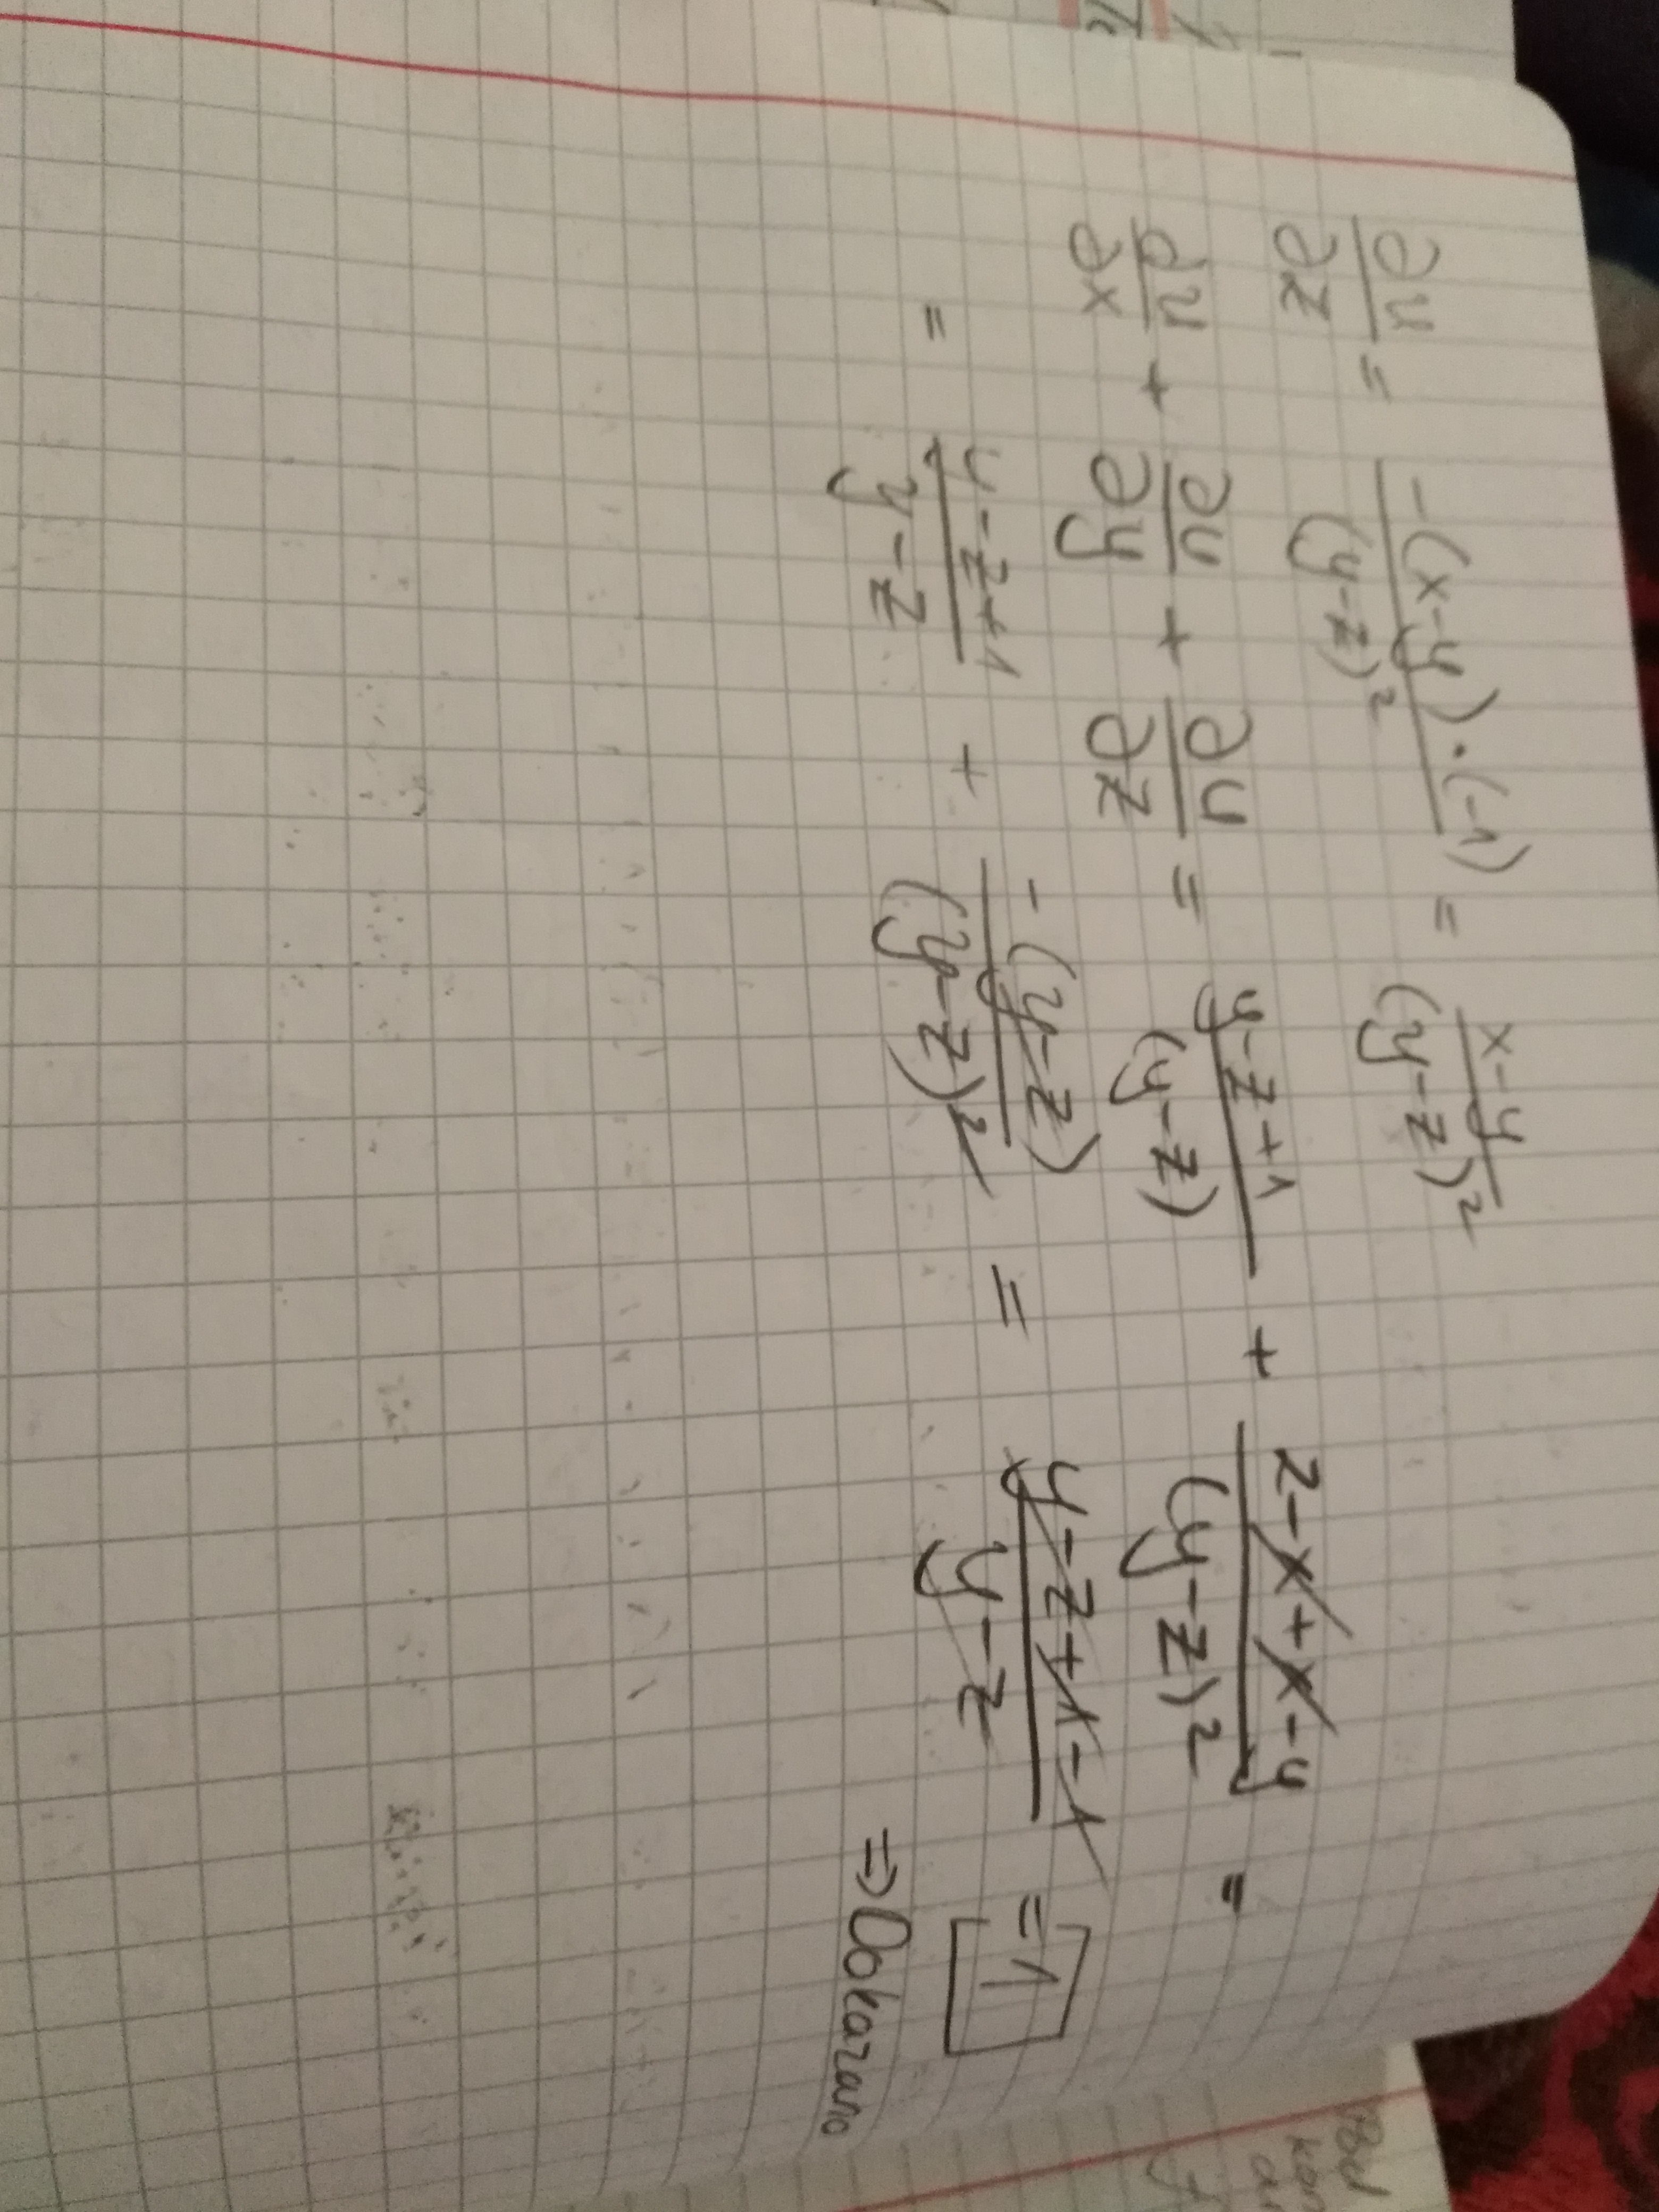 ∂u/∂z = -(x-y)·(-1)/(y-z)² = x-y/(y-z)²
∂u/∂x + ∂u/∂y + ∂u/∂z = y-z+1/(y-z) + z-x+x-y/(y-z)² =
= y-z+1/y-z + -(y-z)/(y-z)² = y-z+1-1/y-z = 1
⇒ Dokazano